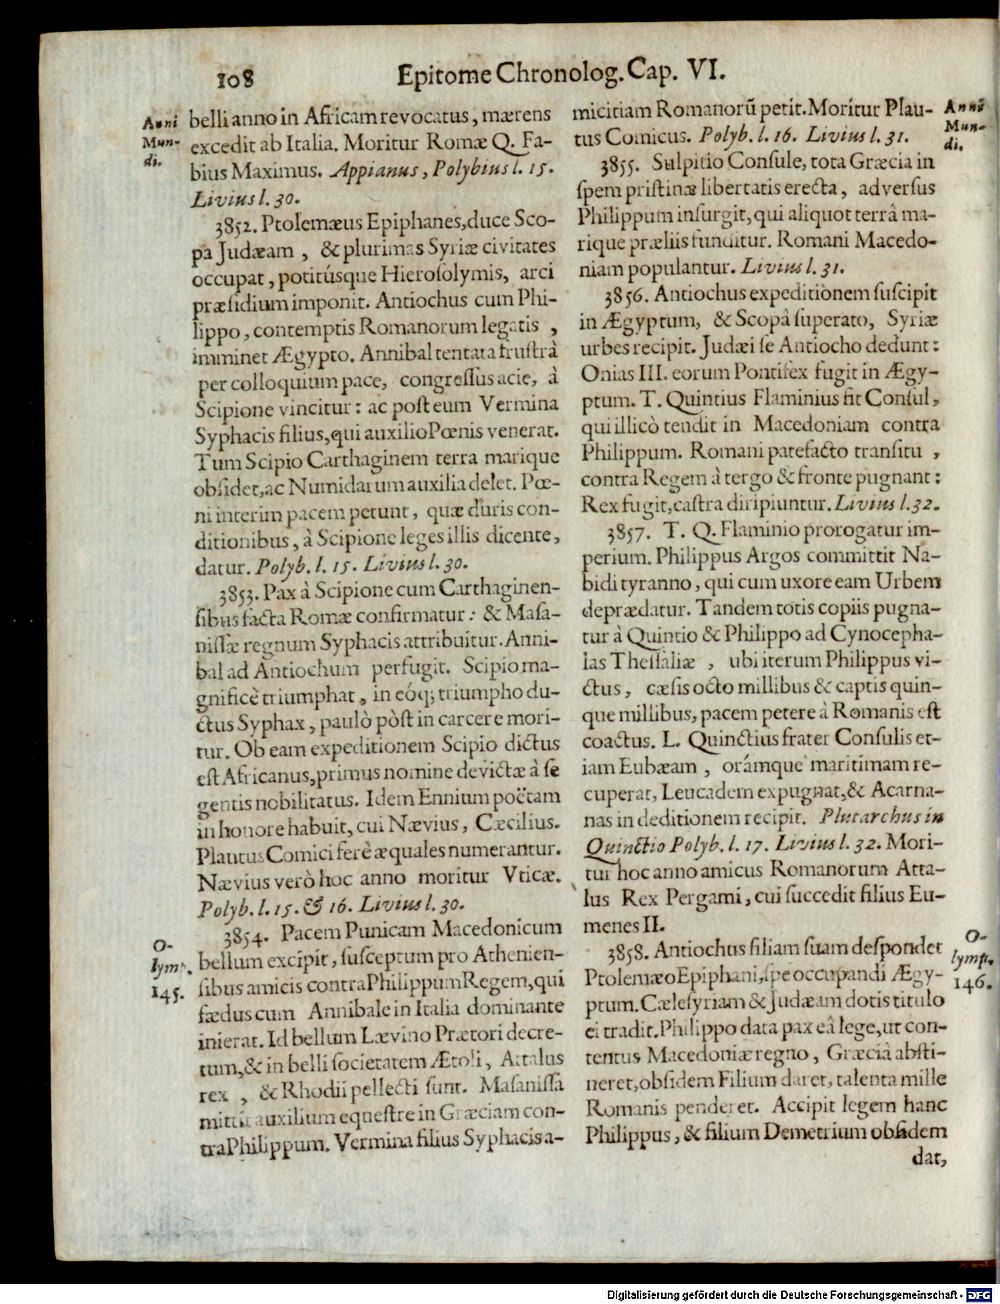 108
Epitome Chronolog. Cap. VI.
Anni
Mun-
di.
belli anno in Africam revocatus, mærens
excedit ab Italia. Moritur Romæ Q. Fa-
bius Maximus. Appianus, Polybius l. 15.
Livius l. 30.
3852. Ptolemæus Epiphanes, duce Sco-
pa Judæam , & plurimas Syriæ civitates
occupat, potitúsque Hierosolymis, arci
præsidium imponit. Antiochus cum Phi-
lippo, contemptis Romanorum legatis ,
imminet Ægypto. Annibal tentata frustrà
per colloquium pace, congressus acie, à
Scipione vincitur: ac post eum Vermina
Syphacis filius, qui auxilio Pœnis venerat.
Tum Scipio Carthaginem terra marique
obsidet, ac Numidarum auxilia delet. Pœ-
ni interim pacem petunt, quæ duris con-
ditionibus, à Scipione leges illis dicente,
datur. Polyb. l. 15. Livius l. 30.
3853. Pax à Scipione cum Carthaginen-
sibus facta Romæ confirmatur: & Masa-
nissæ regnum Syphacis attribuitur. Anni-
bal ad Antiochum perfugit. Scipio ma-
gnificè triumphat, in eóq; triumpho du-
ctus Syphax, paulò pòst in carcere mori-
tur. Ob eam expeditionem Scipio dictus
est Africanus, primus nomine devictæ à se
gentis nobilitatus. Idem Ennium poëtam
in honore habuit, cui Nævius, Cæcilius.
Plautus Comici ferè æquales numerantur.
Nævius verò hoc anno moritur Vticæ.
Polyb. l. 15. & 16. Livius l. 30.
O-
lymp.
145.
3854. Pacem Punicam Macedonicum
bellum excipit, susceptum pro Athenien-
sibus amicis contra Philippum Regem, qui
fædus cum Annibale in Italia dominante
inierat. Id bellum Lævino Prætori decre-
tum, & in belli societatem Ætoli, Attalus
rex , & Rhodii pellecti sunt. Masanissa
mittit auxilium equestre in Græciam con-
tra Philippum. Vermina filius Syphacis a-
Anni
Mun-
di.
micitiam Romanorũ petit. Moritur Plau-
tus Comicus. Polyb. l. 16. Livius l. 31.
3855. Sulpitio Consule, tota Græcia in
spem pristinæ libertatis erecta, adversus
Philippum insurgit, qui aliquot terrâ ma-
rique præliis funditur. Romani Macedo-
niam populantur. Livius l. 31.
3856. Antiochus expeditionem suscipit
in Ægyptum, & Scopâ superato, Syriæ
urbes recipit. Judæi se Antiocho dedunt:
Onias III. eorum Pontifex fugit in Ægy-
ptum. T. Quintius Flaminius fit Consul,
qui illicò tendit in Macedoniam contra
Philippum. Romani patefacto transitu ,
contra Regem à tergo & fronte pugnant:
Rex fugit, castra diripiuntur. Livius l. 32.
3857. T. Q. Flaminio prorogatur im-
perium. Philippus Argos committit Na-
bidi tyranno, qui cum uxore eam Urbem
deprædatur. Tandem totis copiis pugna-
tur à Quintio & Philippo ad Cynocepha-
las Thessaliæ , ubi iterum Philippus vi-
ctus, cæsis octo millibus & captis quin-
que millibus, pacem petere à Romanis est
coactus. L. Quinctius frater Consulis et-
iam Eubæam , orámque maritimam re-
cuperat, Leucadem expugnat, & Acarna-
nas in deditionem recipit. Plutarchus in
Quinctio Polyb. l. 17. Livius l. 32. Mori-
tur hoc anno amicus Romanorum Atta-
lus Rex Pergami, cui succedit filius Eu-
menes II.
O-
lymp.
146.
3858. Antiochus filiam suam despondet
Ptolemæo Epiphani, spe occupandi Ægy-
ptum. Cælesyriam & Judæam dotis titulo
ei tradit. Philippo data pax eâ lege, ut con-
tentus Macedoniæ regno, Græciâ absti-
neret, obsidem Filium daret, talenta mille
Romanis penderet. Accipit legem hanc
Philippus, & filium Demetrium obsidem
dat,
Digitalisierung gefördert durch die Deutsche Forschungsgemeinschaft - DFG